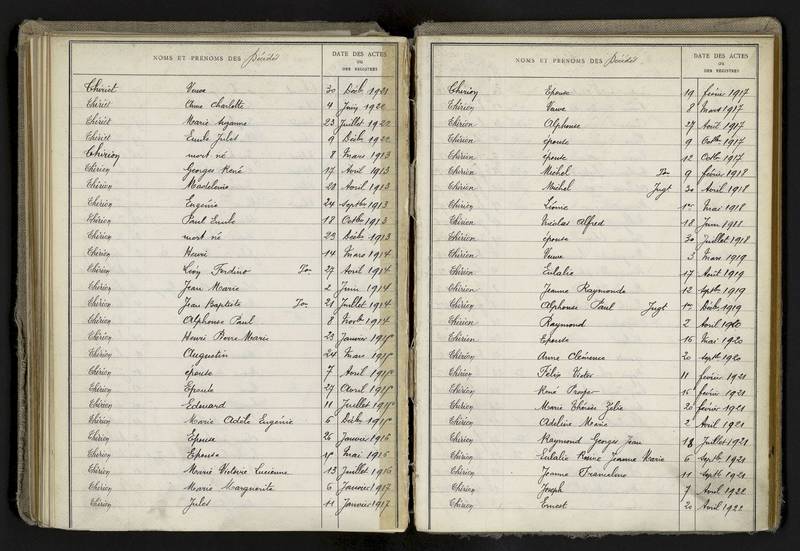 NOMS ET PRENOMS DES Décédés
DATE DES ACTES
OU
DES REGISTRES
Thiriet Veuve 30 Décbr 1921
Thiriet Anne Charlotte 4 Juin 1922
Thiriet Marie 23 Juillet 1922
Thiriet Emile Jules 9 Décbr 1922
Thirion mort né 8 Mars 1913
Thirion Georges René 17 Avril 1913
Thirion Madeleine 20 Avril 1913
Thirion Eugénie 24 Septbr 1913
Thirion Paul Emile 18 Octbr 1913
Thirion mort né 23 Décbr 1913
Thirion Henri 14 Mars 1914
Thirion Léon Ton 27 Avril 1914
Thirion Jean Marie 2 Juin 1914
Thirion Jean Baptiste Ton 21 Juillet 1914
Thirion Alphonse Paul 8 Novbr 1914
Thirion Henri Pierre Marie 23 Janvier 1915
Thirion Augustin 24 Mars 1915
Thirion épouse 7 Avril 1915
Thirion Epouse 27 Avril 1915
Thirion Edouard 11 Juillet 1915
Thirion Marie Adèle Eugénie 6 Décbr 1915
Thirion Epouse 26 Janvier 1916
Thirion Epouse Mai 1916
Thirion Victoire Lucienne 13 Juillet 1916
Thirion Marie Marguerite 6 Janvier 1917
Thirion Jules 11 Janvier 1917
NOMS ET PRENOMS DES Décédés
DATE DES ACTES
OU
DES REGISTRES
Thirion Epouse 19 février 1917
Thirion Veuve 8 Mars 1917
Thirion Alphonse 27 Avril 1917
Thirion épouse 9 Octbr 1917
Thirion épouse 12 Octbr 1917
Thirion Michel Ton 9 février 1918
Thirion Michel Jugt 30 Avril 1918
Thirion Léonie 1er Mai 1918
Thirion Nicolas Alfred 18 Juin
Thirion épouse 30 Juillet 1918
Thirion Veuve 3 Mars 1919
Thirion Eulalie 17 Août 1919
Thirion Jeanne Raymonde 12 Septbr 1919
Thirion Alphonse Paul Jugt 1er Décbr 1919
Thirion Raymond 2 Avril 1920
Thirion Epouse 16 Mai 1920
Thirion Anne Clémence 20 Septbr 1920
Thirion Félix Victor 11 février 1921
Thirion René Prosper 15 février 1921
Thirion Marie Thérèse Zélie 20 février 1921
Thirion Adeline Marie 2 Avril 1921
Thirion Raymond Georges Jean 18 Juillet 1921
Thirion Eulalie Jeanne Marie 6 Septbr 1921
Thirion Jeanne 11 Septbr 1921
Thirion Joseph 7 Avril 1922
Thirion Ernest 20 Avril 1922